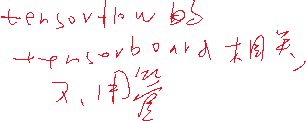 tensorflow 的
tensorboard 相关,
不用管